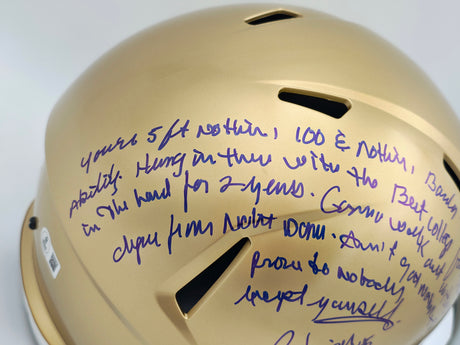 youre 5 ft nothin, 100 & nothin, Barely
Ability. Hung in there with the Best college
in the land for 2 years. Gonna walk out
degree from Notre Dame. Ain't gotta
prove to nobody
except yourself.